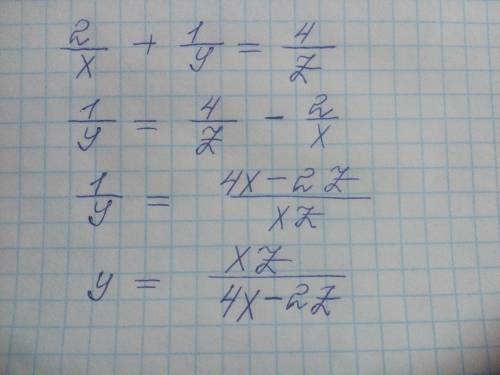 2/x + 1/y = 4/z
1/y = 4/z - 2/x
1/y = (4x - 2z)/(xz)
y = (xz)/(4x - 2z)